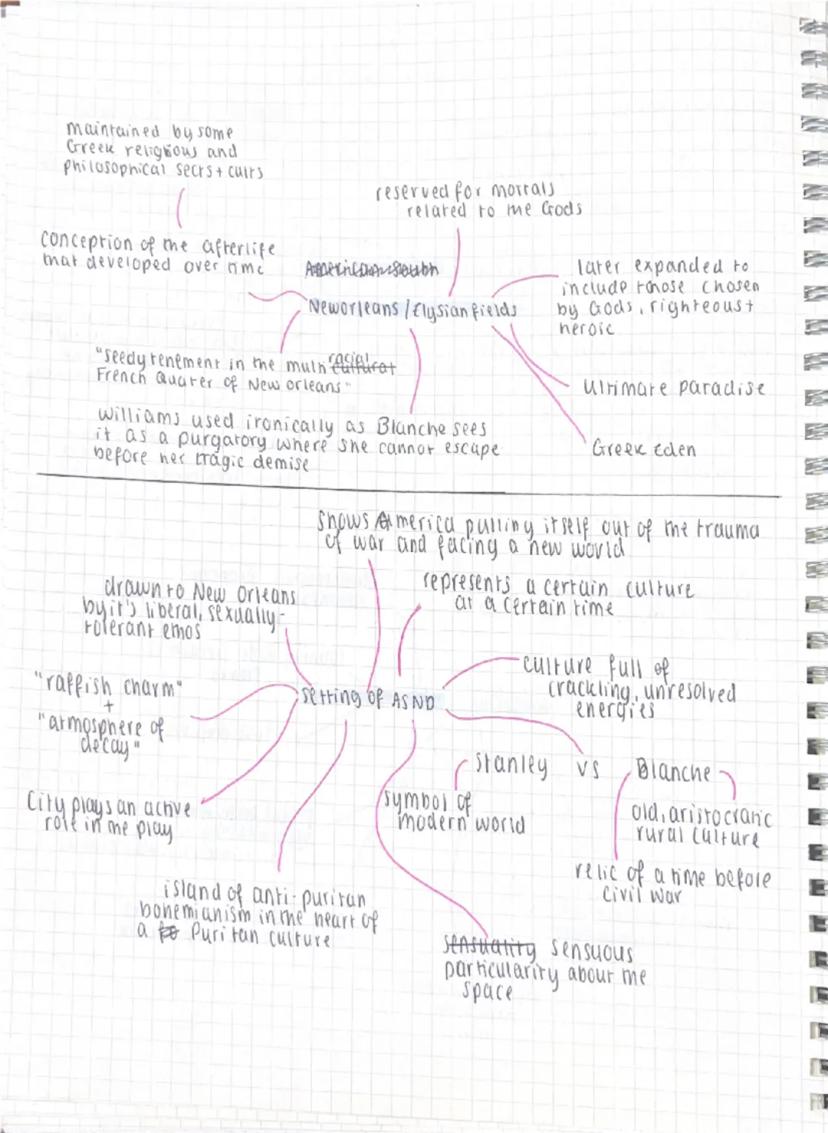 maintained by some
Greek religious and
philosophical sects + cults
reserved for mortals
related to the Gods
conception of the afterlife
that developed over time
American South
later expanded to
include those chosen
by Gods, righteous +
heroic
New orleans / Elysian fields
"seedy tenement in the multi racial cultural
French Quarter of New orleans"
ultimate paradise
Williams used ironically as Blanche sees
it as a purgatory where she cannot escape
before her tragic demise
Greek Eden
shows America pulling itself out of the trauma
of war and facing a new world
drawn to New Orleans
by it's liberal, sexually-
tolerant emos
represents a certain culture
at a certain time
culture full of
crackling, unresolved
energies
"raffish charm"
+
"atmosphere of
decay"
setting of ASND
stanley vs Blanche
symbol of
modern world
old, aristocratic
rural culture
City plays an active
role in the play
relic of a time before
civil war
island of anti-puritan
bohemianism in the heart of
a Puritan culture
sensuality sensuous
particularity about the
space